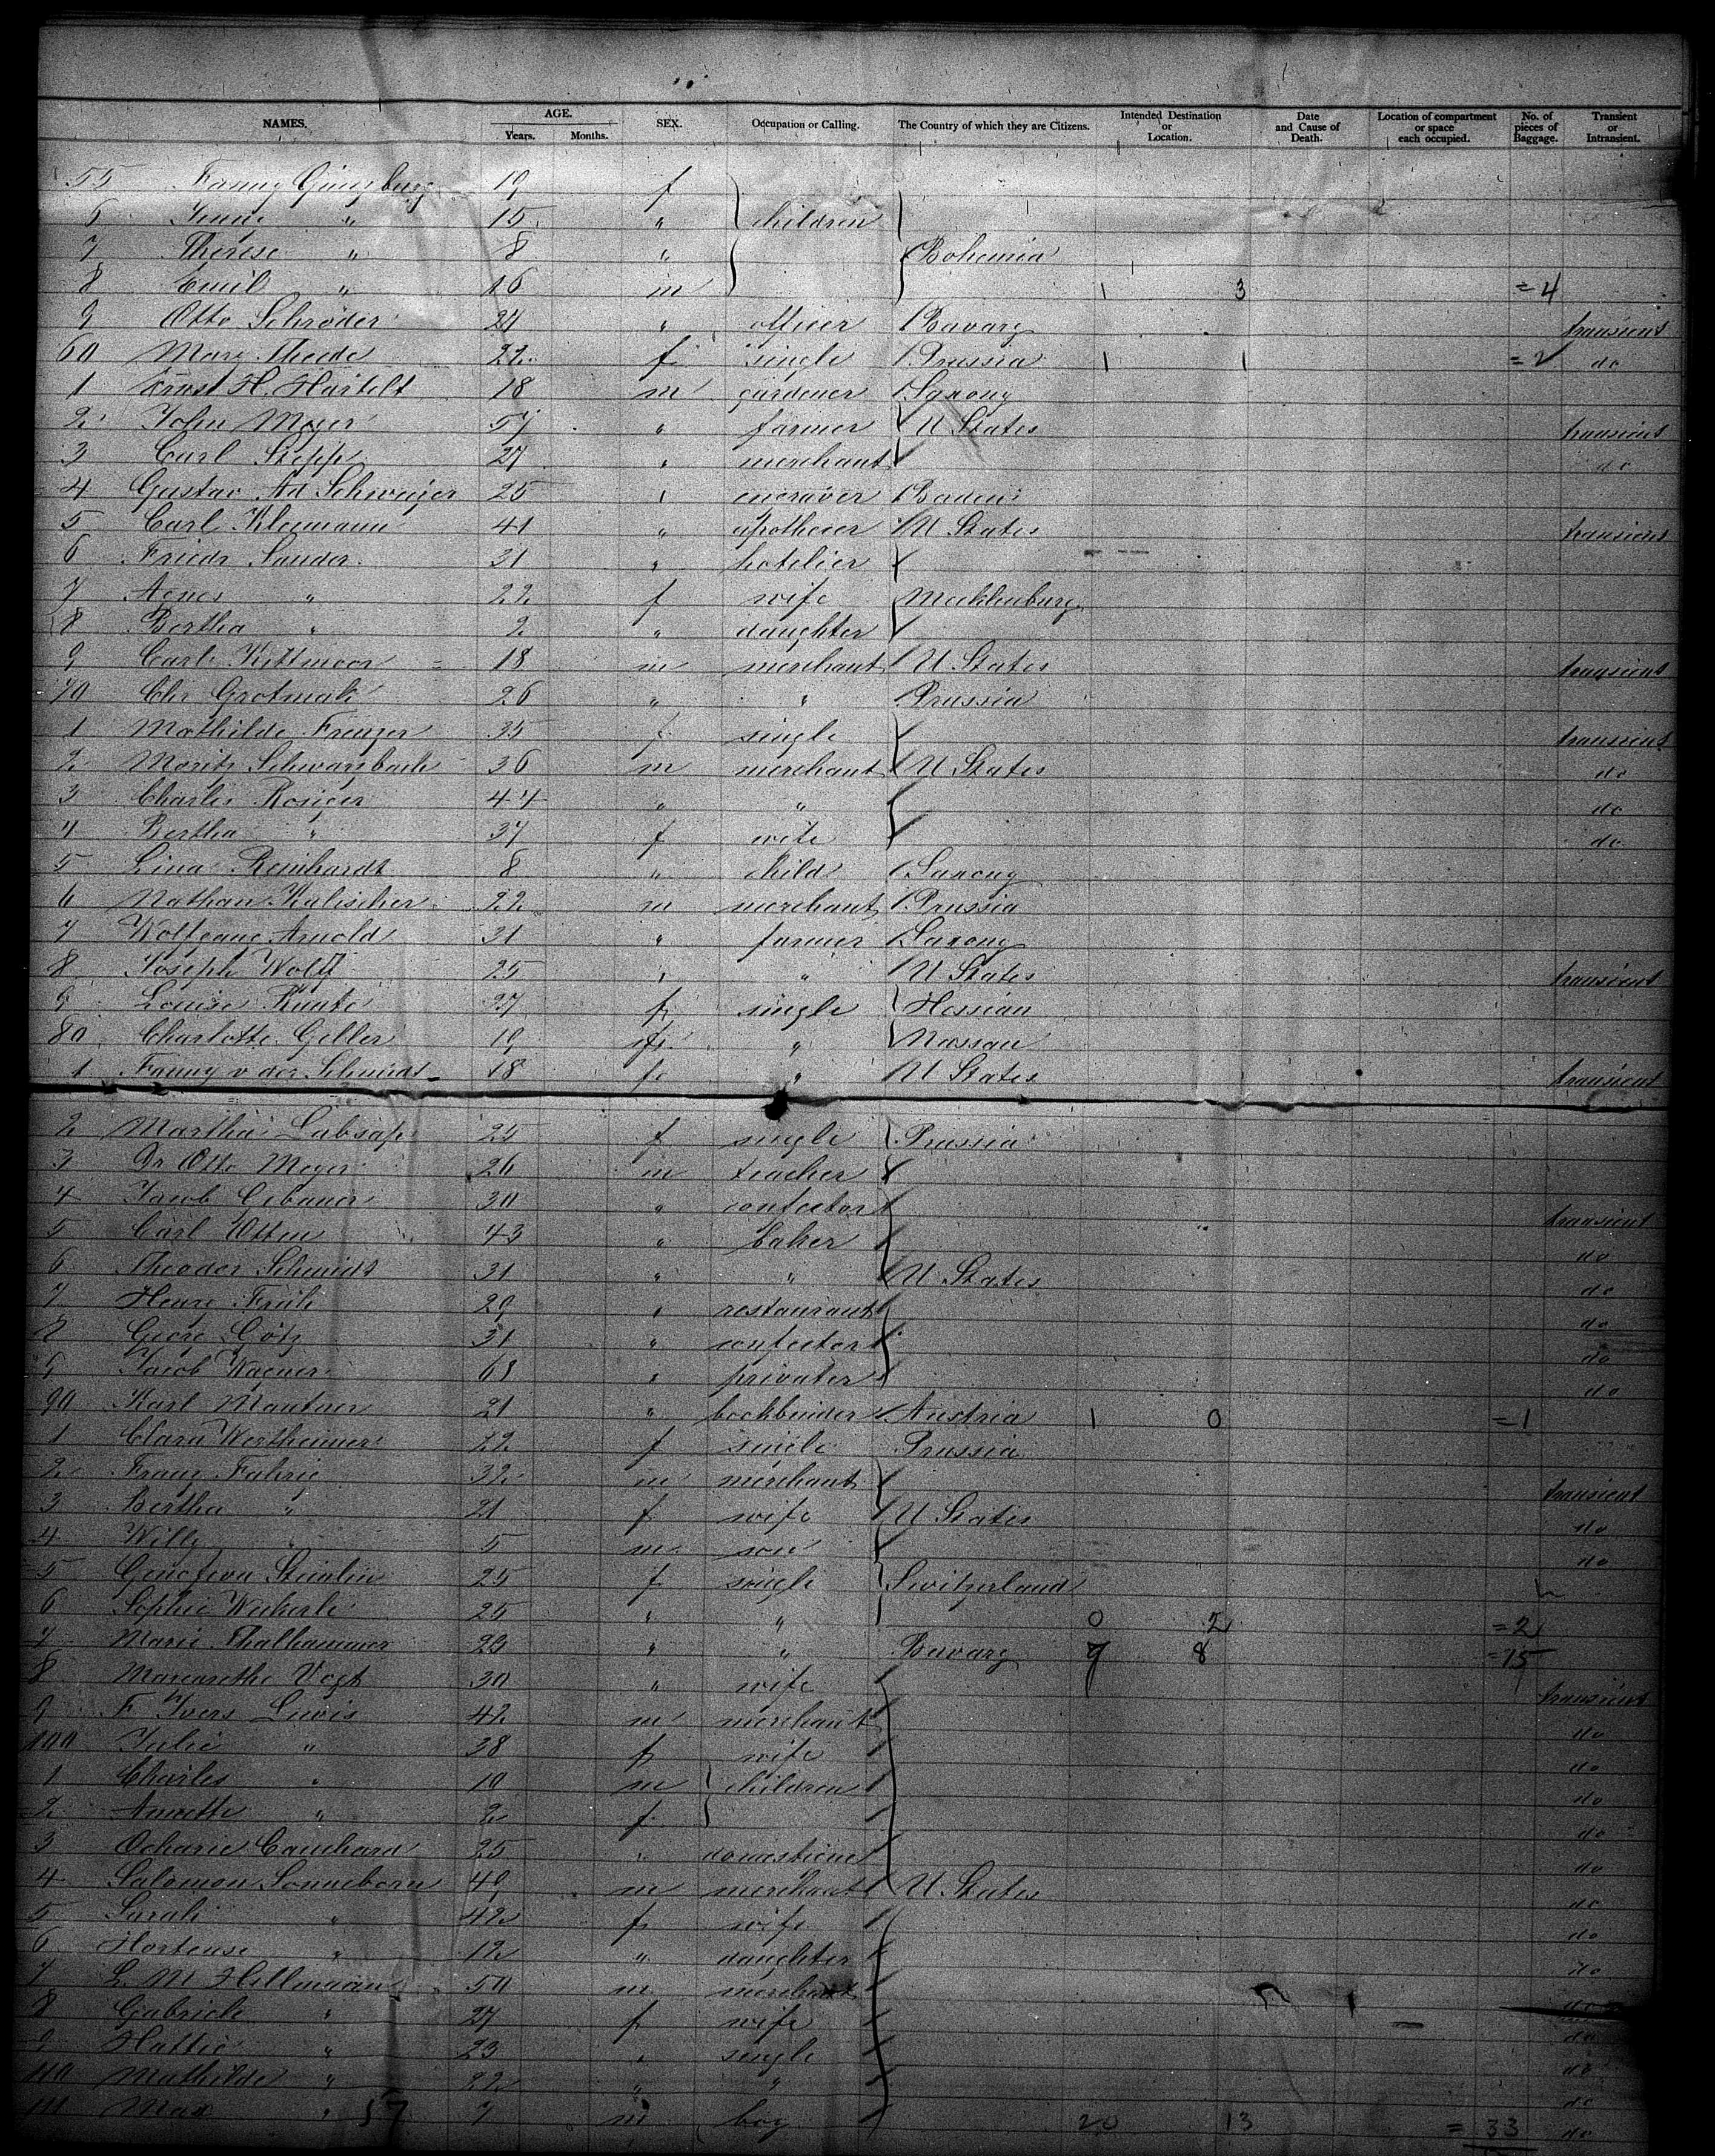 NAMES. AGE. Years. Months. SEX. Occupation or Calling. The Country of which they are Citizens. Intended Destination or Location. Date and Cause of Death. Location of compartment or space each occupied. No. of pieces of Baggage. Transient or Intransient.
55 Fanny 19 f
6 " 15 " children
7 Therese " 8 " Bohemia
8 Emil " 16 m 1 3 =4
9 Otto Schröder 24 " officer Bavary transient
60 Mary Theede 22 f single Prussia 1 1 =2 do
1 Ernst H. Hartelt 18 m gardener Saxony
2 John Meyer 57 " farmer U States transient
3 Carl Stepp 27 " merchant do
4 Gustav Ad Schweizer 25 " engraver Baden
5 Carl Kleemann 41 " U States transient
6 Friedr Sander 31 " hotelier
7 Agnes " 22 f wife Mecklenburg
8 Bertha " 2 " daughter
9 Carl 18 m merchant U States transient
70 Chr 26 " " Prussia
1 Mathilde 35 f single transient
2 Moritz Schwarzbach 36 m merchant U States do
3 Charles 44 " " do
4 Bertha " 37 f wife do
5 Lina Reinhardt 8 " child Saxony
6 Nathan Kalischer 22 m merchant Prussia
7 Wolfgang Arnold 31 " farmer Saxony
8 Joseph Wolff 25 " " U States transient
9 Louise 27 f single Hessian
80 Charlotte Geller 19 f " Nassau
1 Fanny v der Schmidt 18 f " U States transient
2 Martha 25 f single Prussia
3 Dr Otto Meyer 26 m teacher
4 Jacob 30 " confector transient
5 Carl Otten 43 " baker do
6 Theodor Schmidt 31 " " U States do
7 Henry Früh 29 " restaurant do
8 Georg Götz 31 " confector do
9 Jacob Wagner 68 " privater do
90 Karl Mautner 21 " bookbinder Austria 1 0 =1
1 Clara Wertheimer 22 f single Prussia
2 Franz 32 m merchant transient
3 Bertha " 21 f wife U States do
4 Willy " 5 m son do
5 25 f single Switzerland
6 Sophie 25 " " 0 2 =2
7 Marie Thalhammer 23 " " Bavary 7 8 =15
8 Margarethe Vogt 30 " wife transient
9 F. Ivers Lewis 42 m merchant do
100 Julie " 38 f wife do
1 Charles " 10 m children do
2 Annette " 2 f do
3 25 " do
4 Salomon Sonneborn 49 m merchant U States do
5 Sarah " 42 f wife do
6 Hortense " 12 " daughter do
7 L. M. Hellmann 50 m merchant do
8 Gabriele " 27 f wife do
9 Hattie " 23 " single do
110 Mathilde " 22 " " do
111 Max " 57 7 m boy 20 13 = 33 do